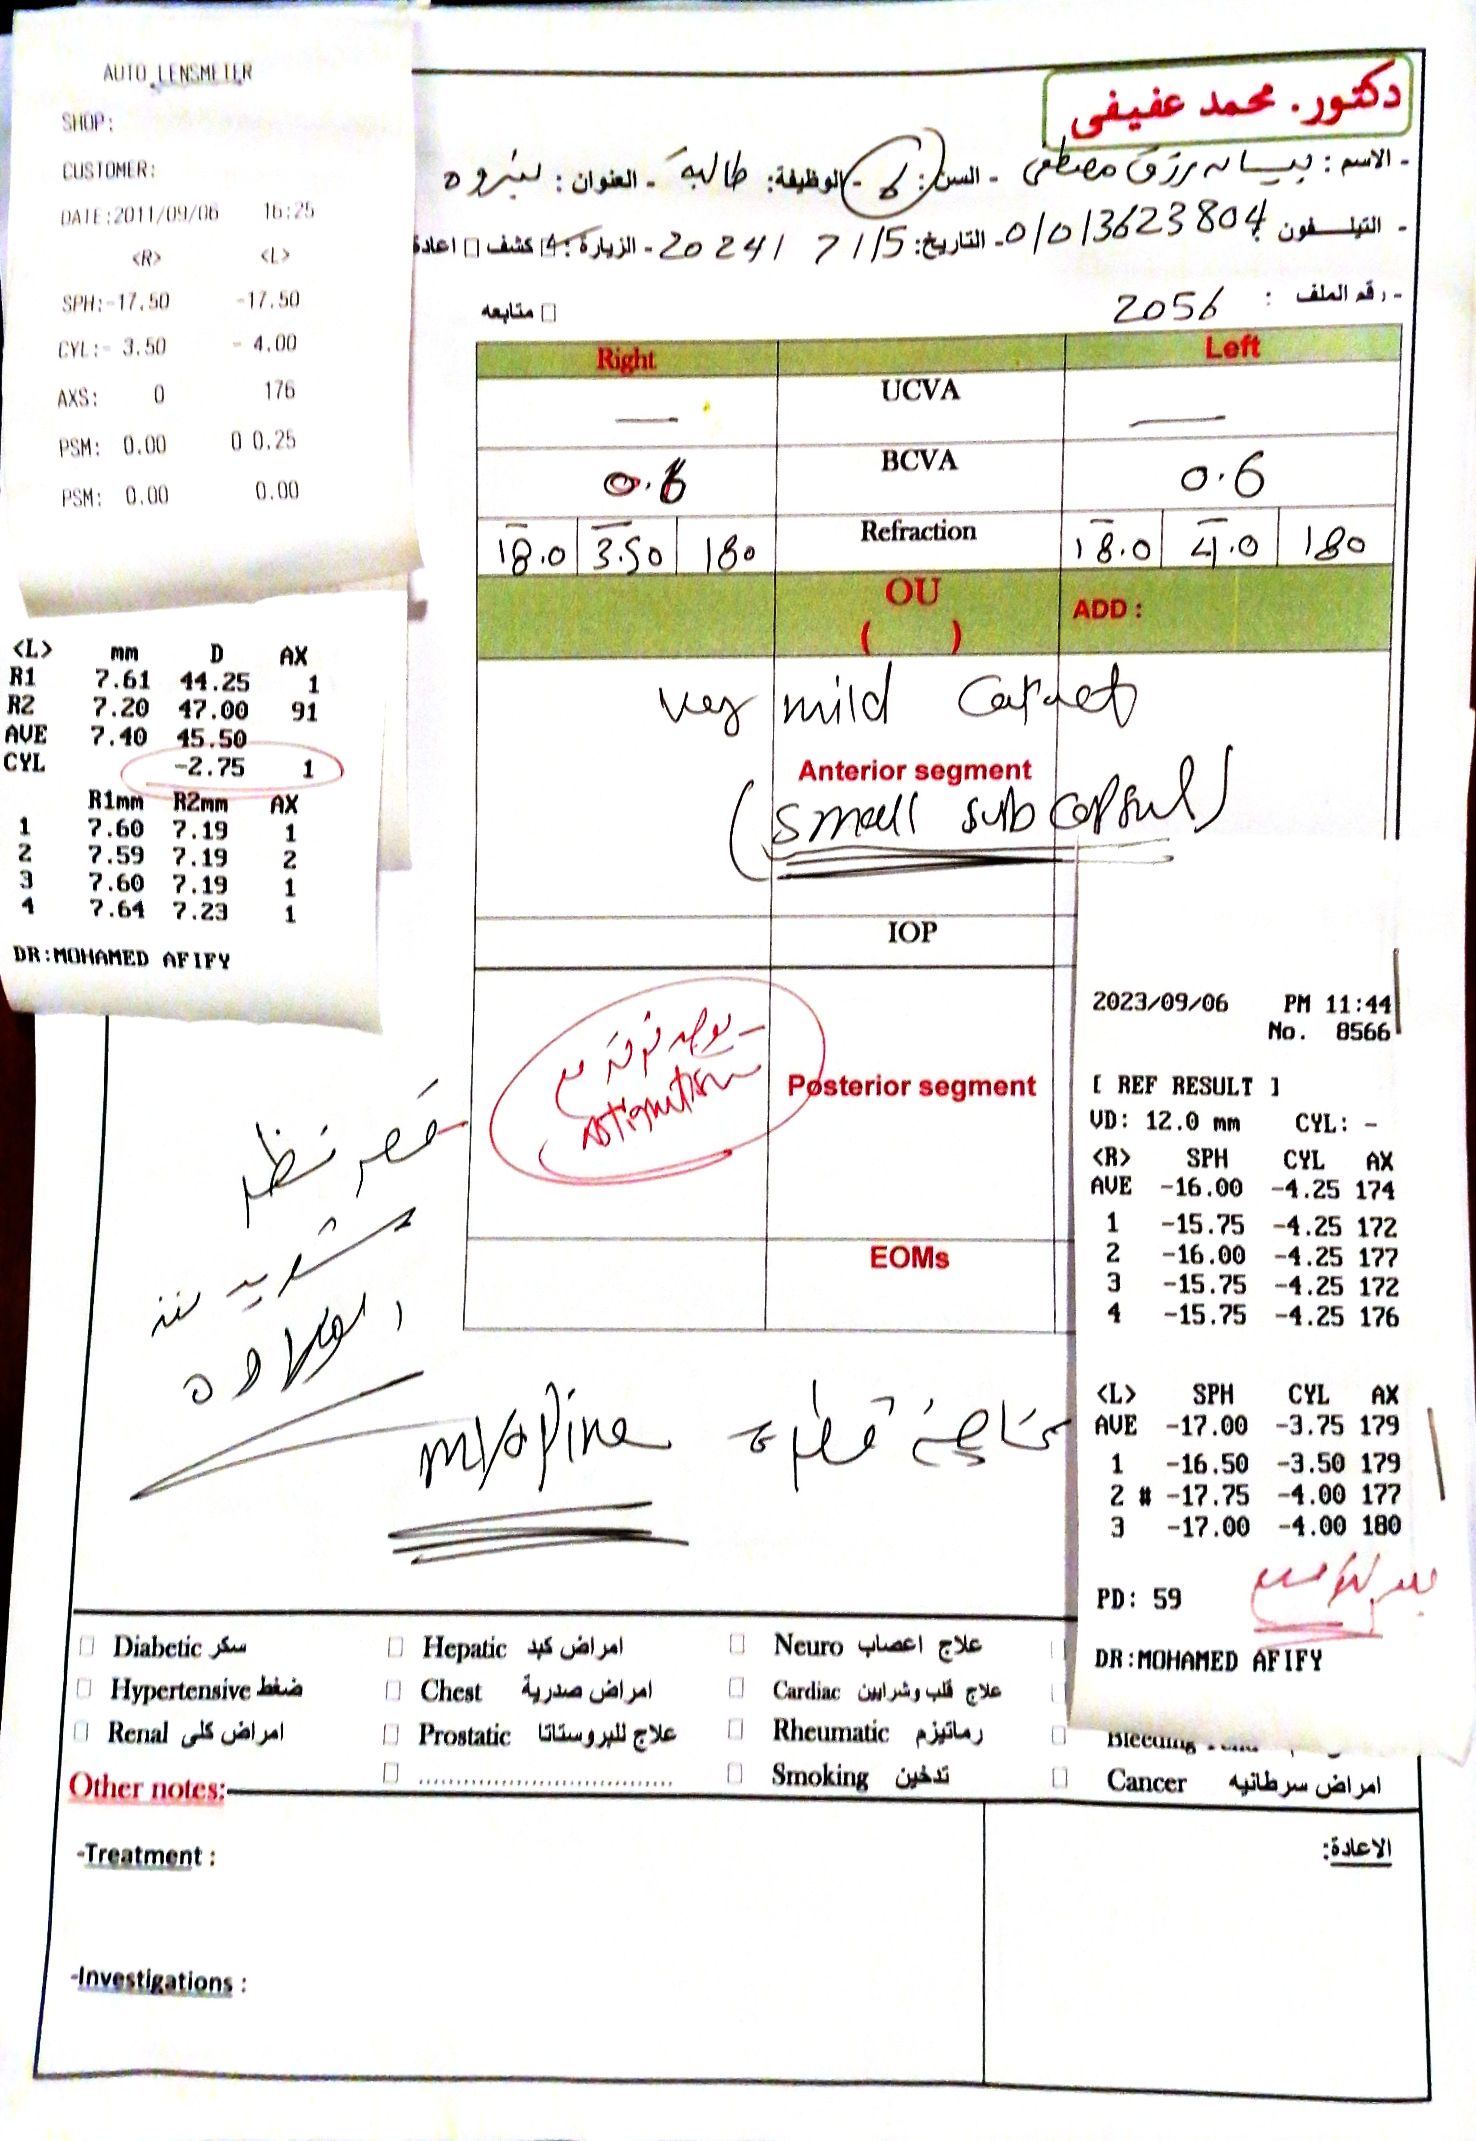 AUTO LENSMETER
SHOP:
CUSTOMER:
DATE:2011/09/06 16:25
<R> <L>
SPH:-17.50 -17.50
CYL:- 3.50 - 4.00
AXS: 0 176
PSM: 0.00 0 0.25
PSM: 0.00 0.00
<L> mm D AX
R1 7.61 44.25 1
R2 7.20 47.00 91
AVE 7.40 45.50
CYL -2.75 1
R1mm R2mm AX
1 7.60 7.19 1
2 7.59 7.19 2
3 7.60 7.19 1
4 7.64 7.23 1
DR:MOHAMED AFIFY
دكتور. محمد عفيفى
- الاسم : بيسانه رزق مصطفى - السن: 6 - الوظيفة: طالبة - العنوان : نبروه
- التيلفون 01013623804 - التاريخ: 15/7/2024 - الزيارة: كشف اعادة
- رقم الملف : 2056
متابعه
Right Left
— UCVA —
0.6 BCVA 0.6
-18.0 -3.50 180 Refraction -18.0 -4.0 180
OU
( ) ADD :
very mild cataract
Anterior segment
(small subcapsul)
IOP
Posterior segment
EOMs
يوجد فرق في
astigmatism
قصر نظر
شديد منذ
الولادة
myopine
2023/09/06 PM 11:44
No. 8566
[ REF RESULT ]
VD: 12.0 mm CYL: -
<R> SPH CYL AX
AVE -16.00 -4.25 174
1 -15.75 -4.25 172
2 -16.00 -4.25 177
3 -15.75 -4.25 172
4 -15.75 -4.25 176
<L> SPH CYL AX
AVE -17.00 -3.75 179
1 -16.50 -3.50 179
2 # -17.75 -4.00 177
3 -17.00 -4.00 180
PD: 59
DR:MOHAMED AFIFY
Diabetic سكر Hepatic امراض كبد Neuro علاج اعصاب
Hypertensive ضغط Chest امراض صدرية Cardiac علاج قلب وشرايين
Renal امراض كلى Prostatic علاج للبروستاتا Rheumatic رماتيزم Bleeding
Smoking تدخين Cancer امراض سرطانيه
Other notes:
-Treatment :
الاعادة:
-Investigations :